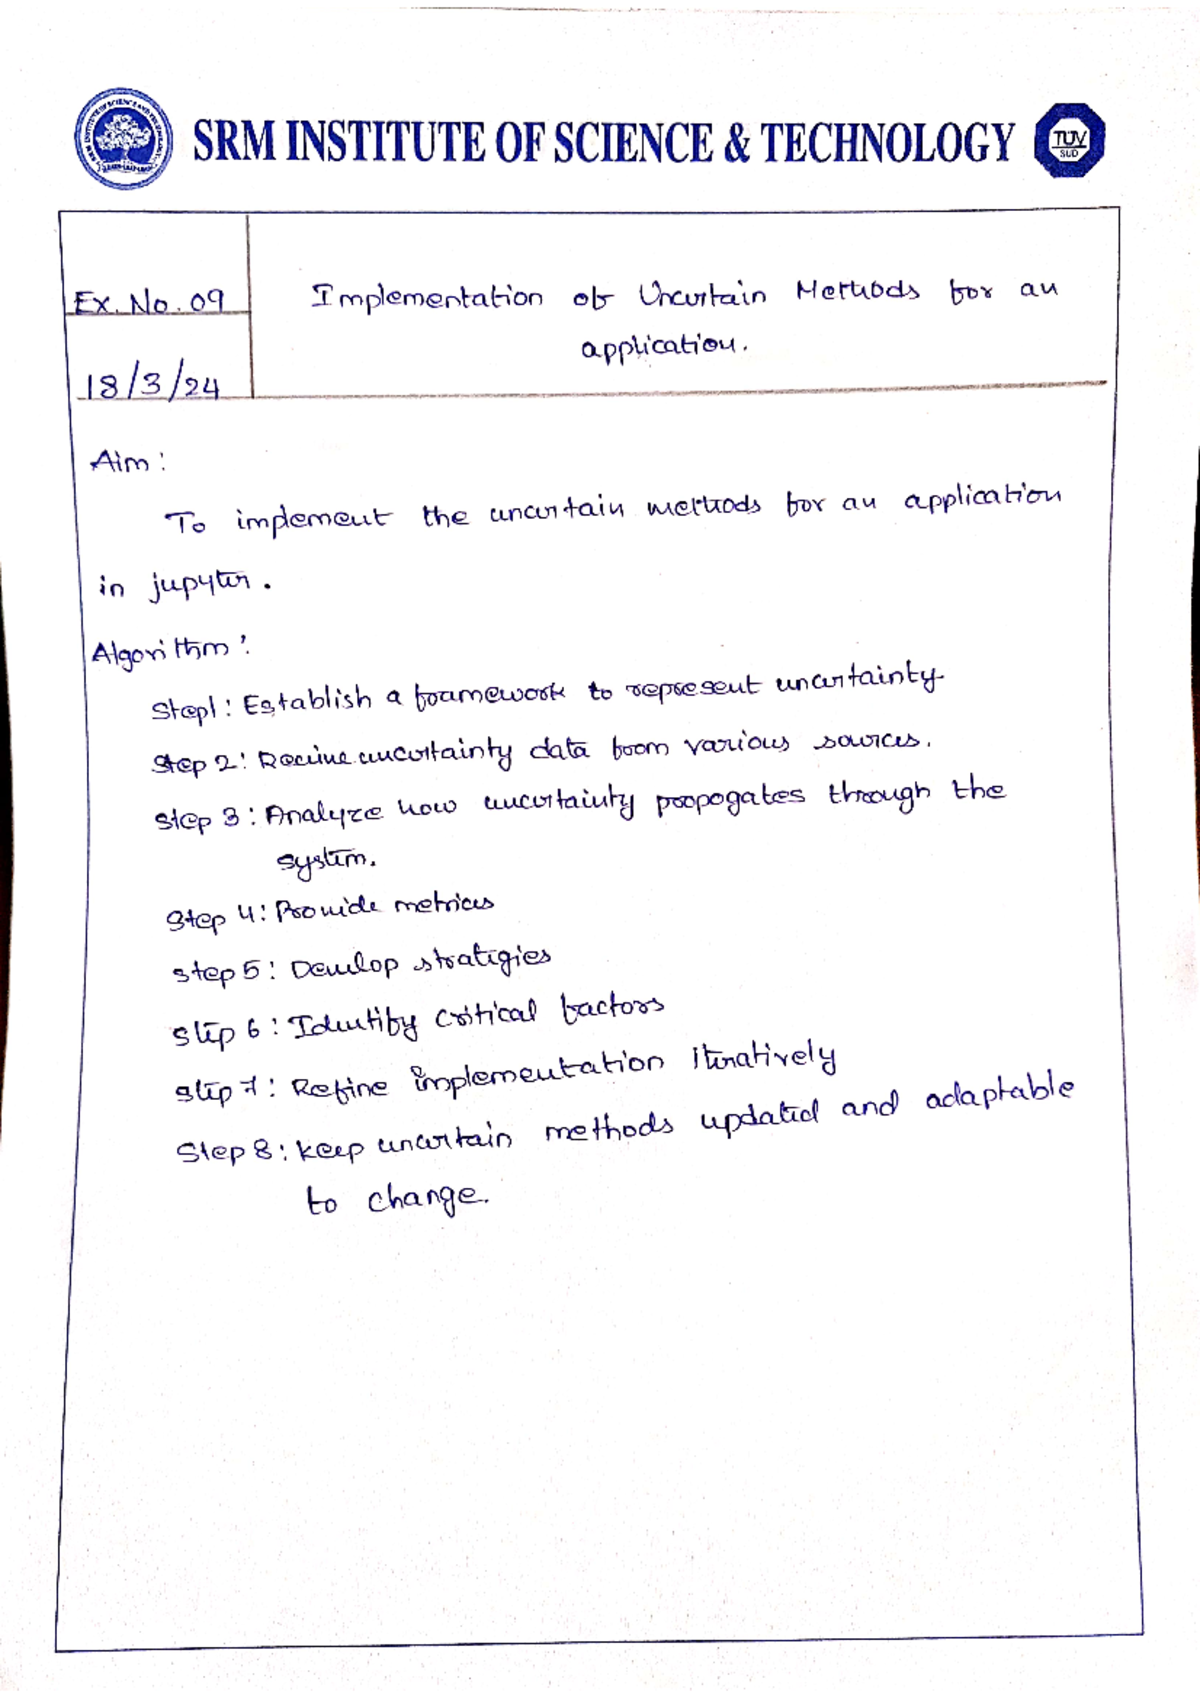 SRM INSTITUTE OF SCIENCE & TECHNOLOGY
TÜV
SUD
Ex. No. 09
Implementation of Uncertain Methods for an
application.
18/3/24
Aim:
To implement the uncertain methods for an application
in jupyter.
Algorithm:
Step1: Establish a framework to represent uncertainty
Step 2: Receive uncertainty data from various sources.
Step 3: Analyze how uncertainty propogates through the
system.
Step 4: Provide metrices
Step 5: Develop strategies
Step 6: Identify critical factors
Step 7: Refine implementation iteratively
Step 8: keep uncertain methods updated and adaptable
to change.